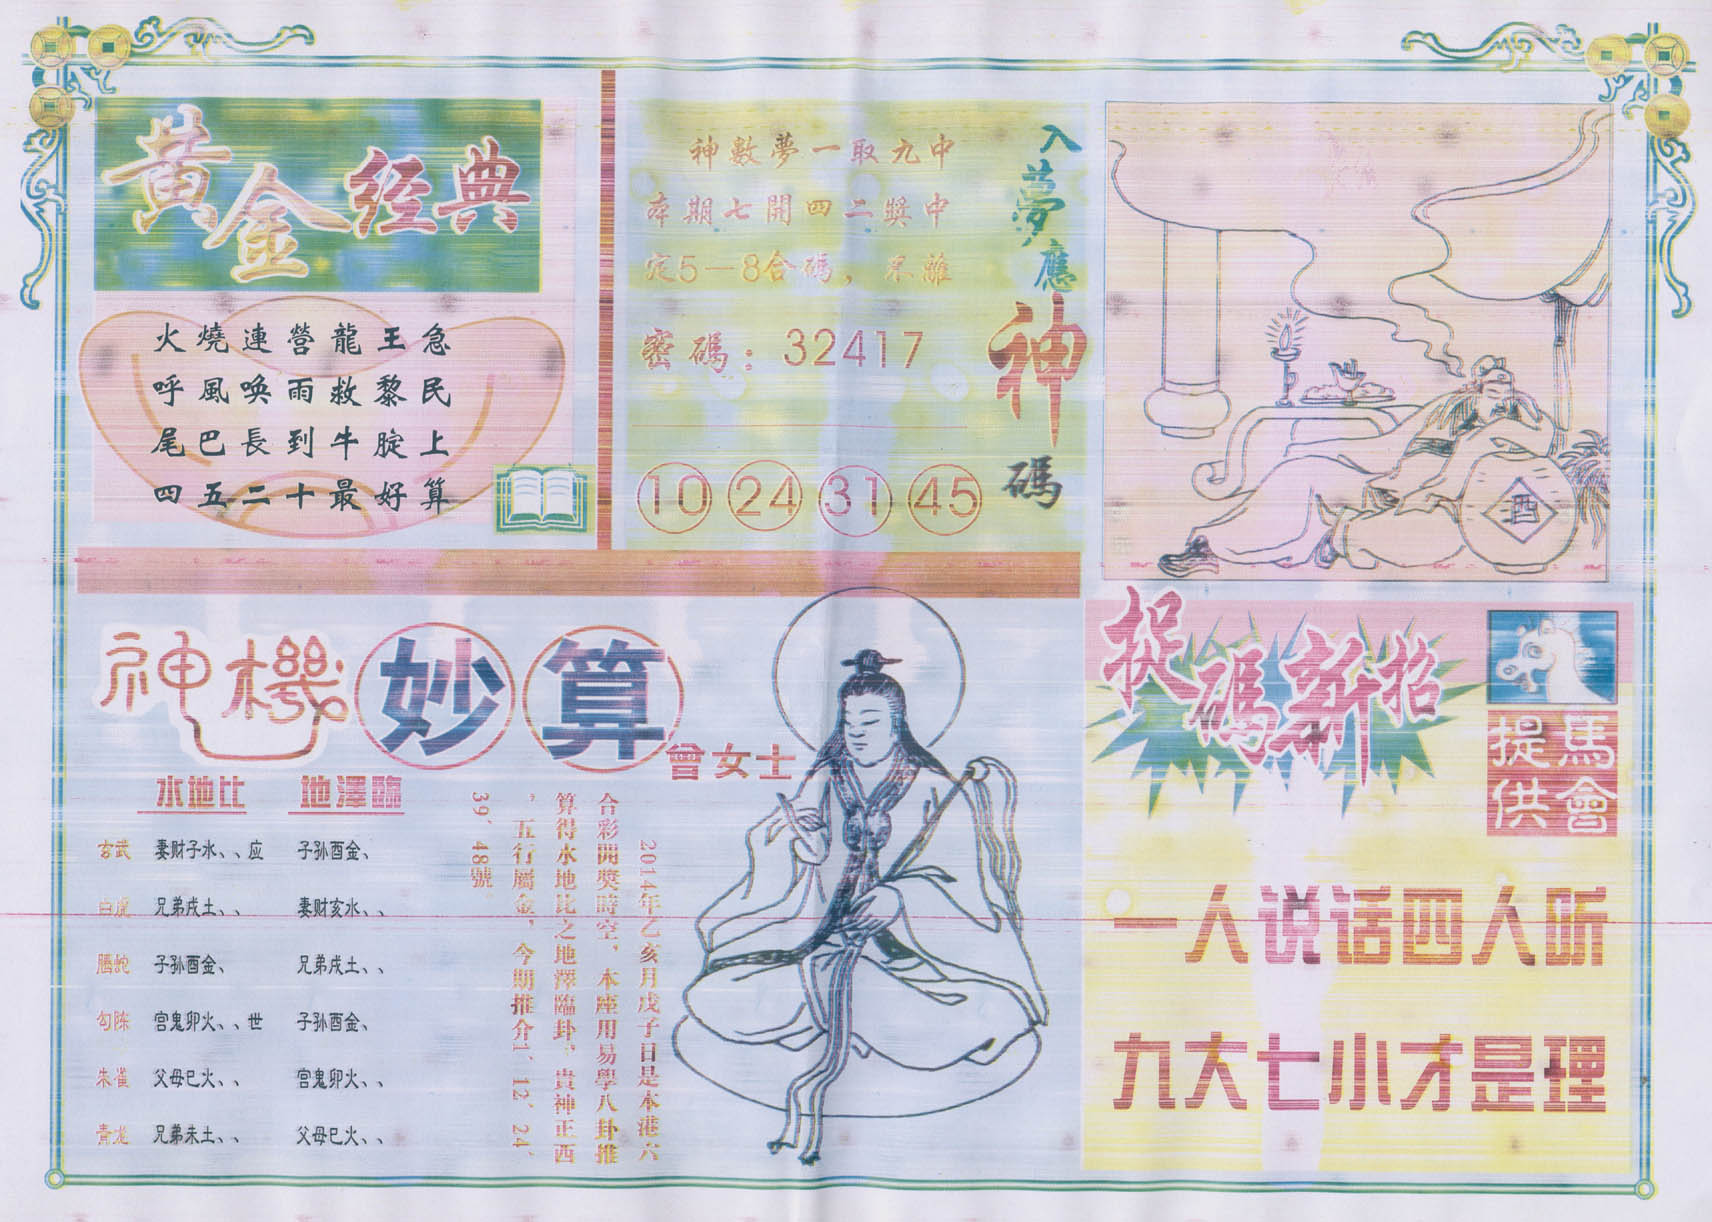 黄金经典
火燒連營龍王急
呼風喚雨救黎民
尾巴長到牛腚上
四五二十最好算
入夢應神碼
神數夢一取九中
本期七開四二獎中
定5—8合碼，不離
密碼：32417
10 24 31 45
酉
神機妙算
曾女士
水地比 地澤臨
玄武 妻财子水、、应 子孙酉金、
白虎 兄弟戌土、、 妻财亥水、、
螣蛇 子孙酉金、 兄弟戌土、、
勾陈 宫鬼卯火、、世 子孙酉金、
朱雀 父母巳火、、 宫鬼卯火、、
青龙 兄弟未土、、 父母巳火、、
2014年乙亥月戊子日是本港六
合彩開獎時空，本座用易學八卦推
算得水地比之地澤臨卦，貴神正西
，五行屬金，今期推介1、12、24、
39、48號
捉碼新招
馬會
提供
一人说话四人听
九大七小才是理